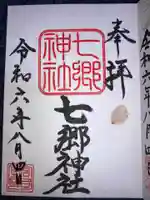 奉拝
七郷
神社
七郷神社
令和六年八月四日